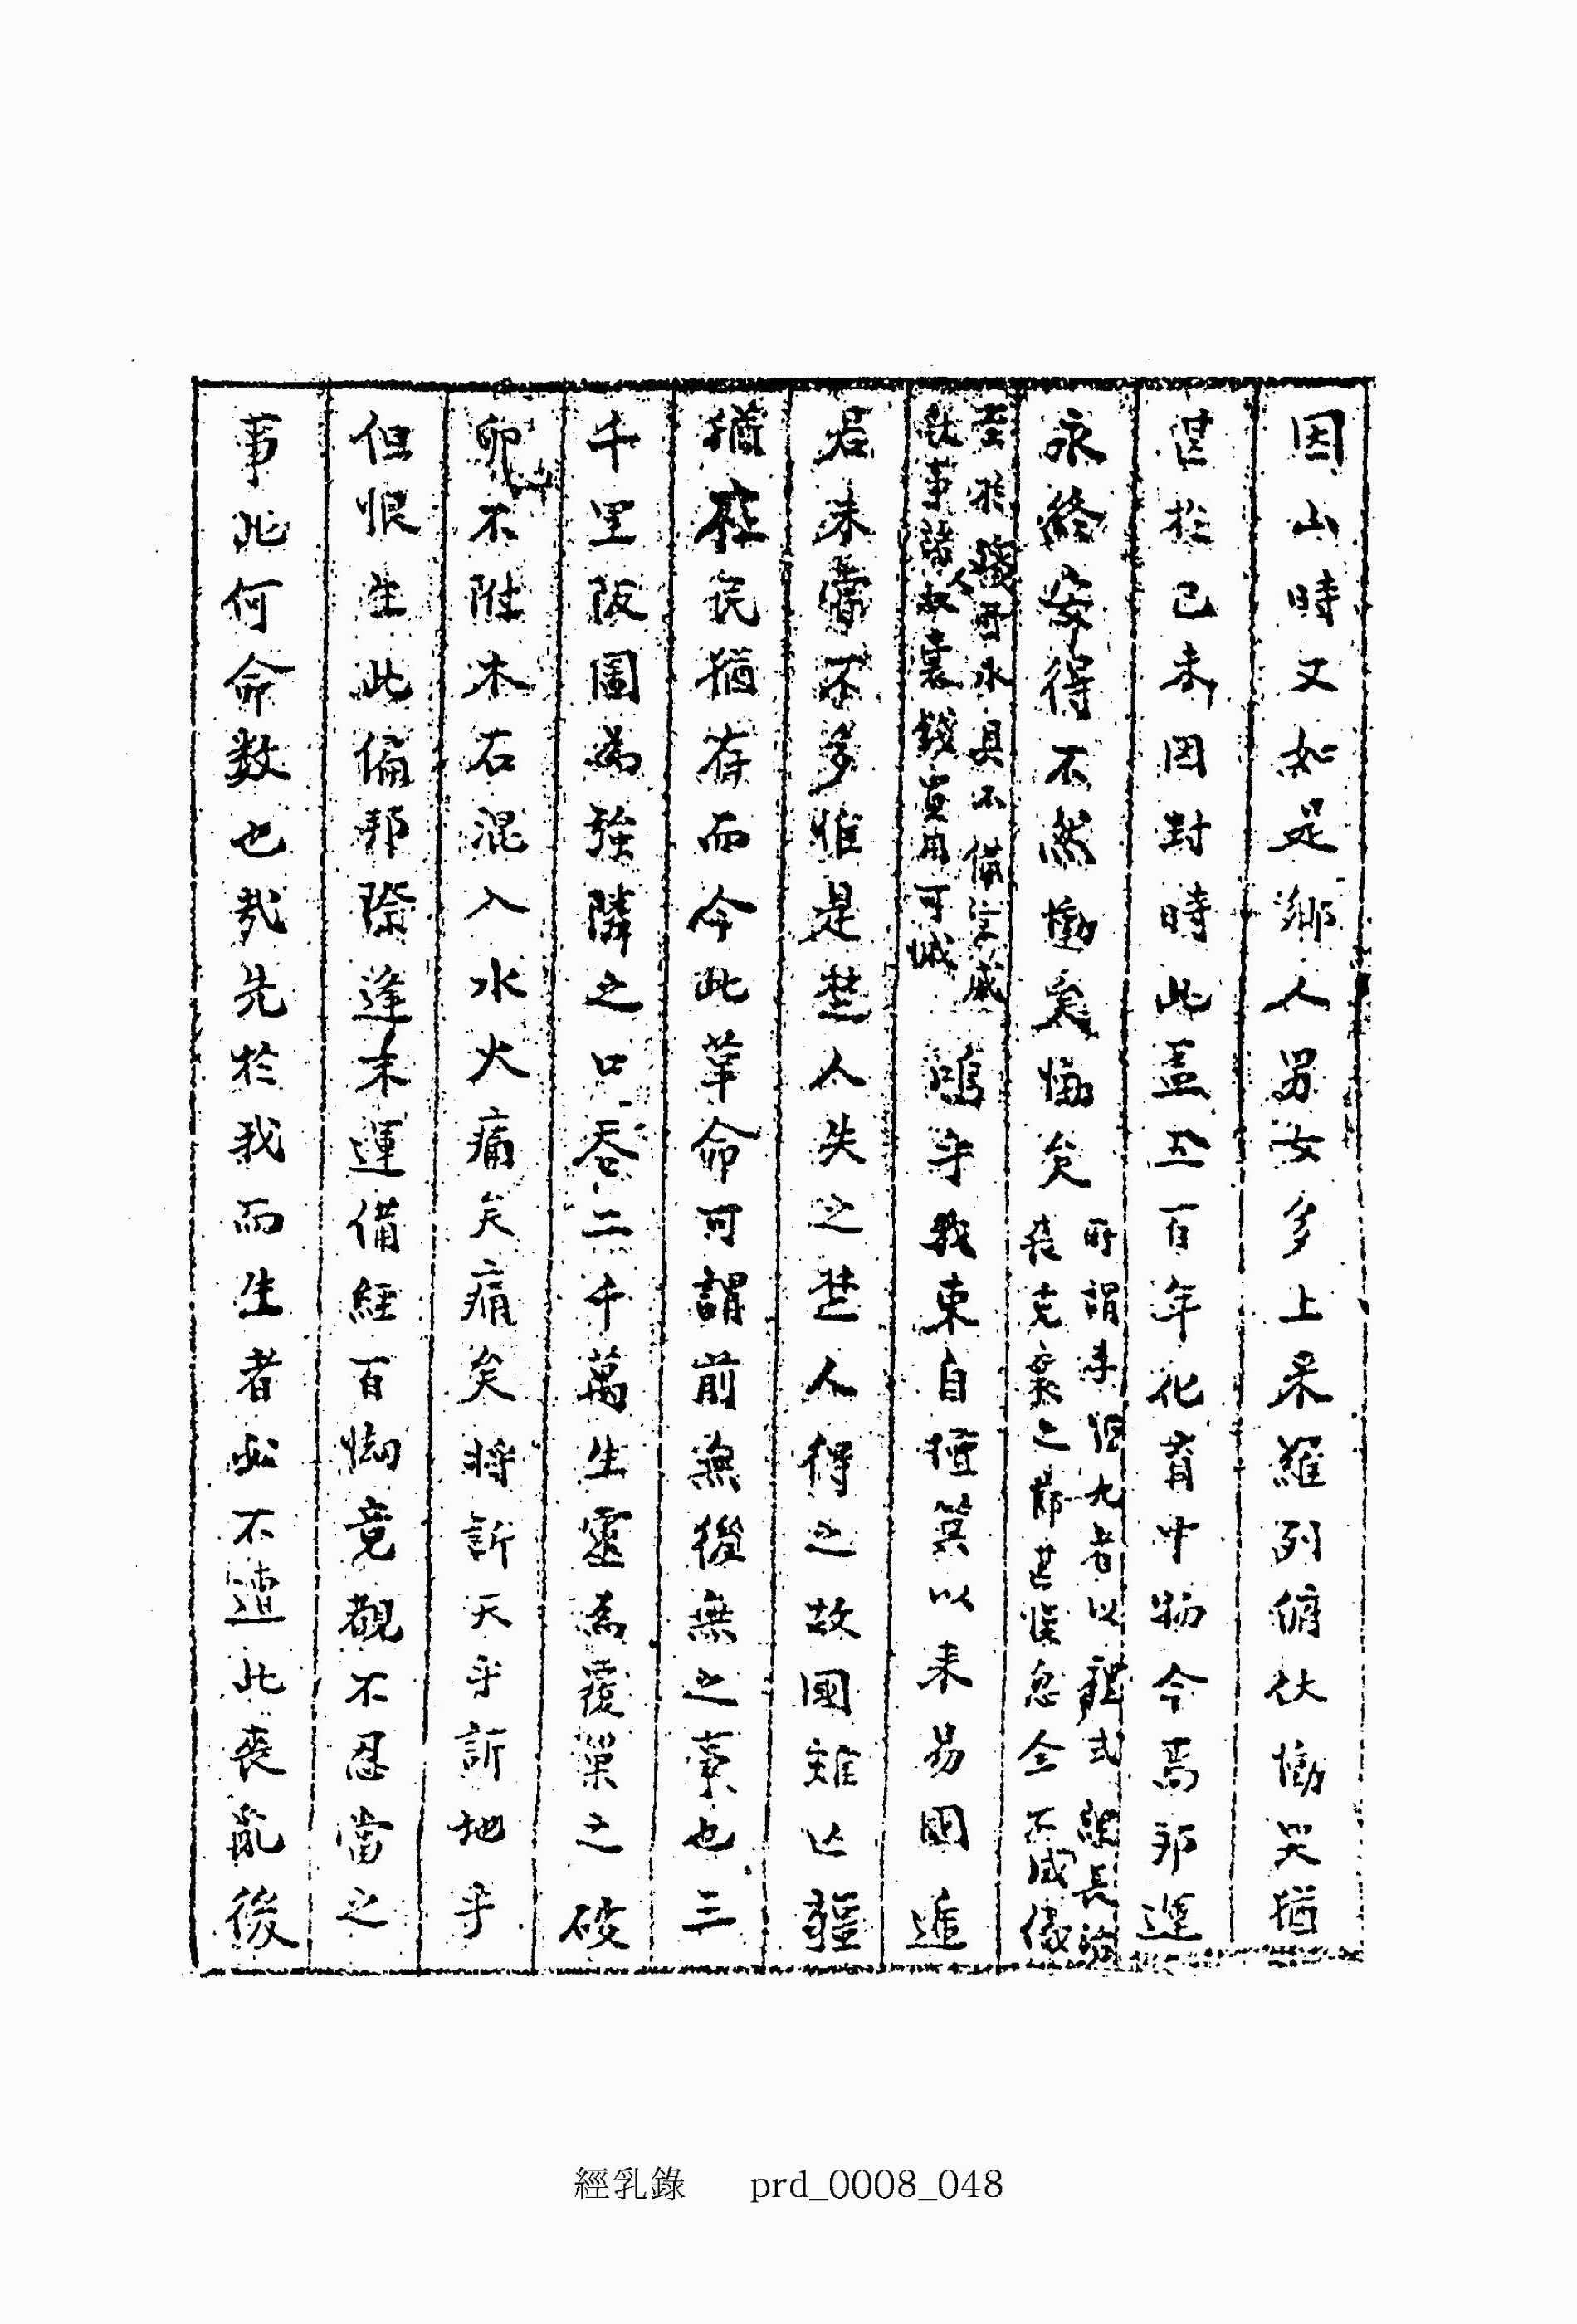 因山時又如是鄕人男女多上來羅列俯伏慟哭猶
甚於己未因封時此盖五百年化育中物今焉邦運
永終安得不然慟矣慟矣所謂李 九者以 式 長 
喪 克襄之節甚 忽全不成儀
至於 吾水具不備 咸
 事諸人 囊錢 用可 嗚乎我東自檀箕以來易國遞
君未嘗不多惟是楚人失之楚人得之故國雖亡疆
猶在民猶存而今此革命可謂前無後無之事也三
千里版圖為強隣之口吞二千萬生靈為覆巢之破
卵不附木石混入水火痛矣痛矣將訴天乎訴地乎
但恨生此偏邦際逢末運備經百 竟覩不忍當之
事此何命數也哉先於我而生者必不遭此喪亂後
經乳錄 prd_0008_048